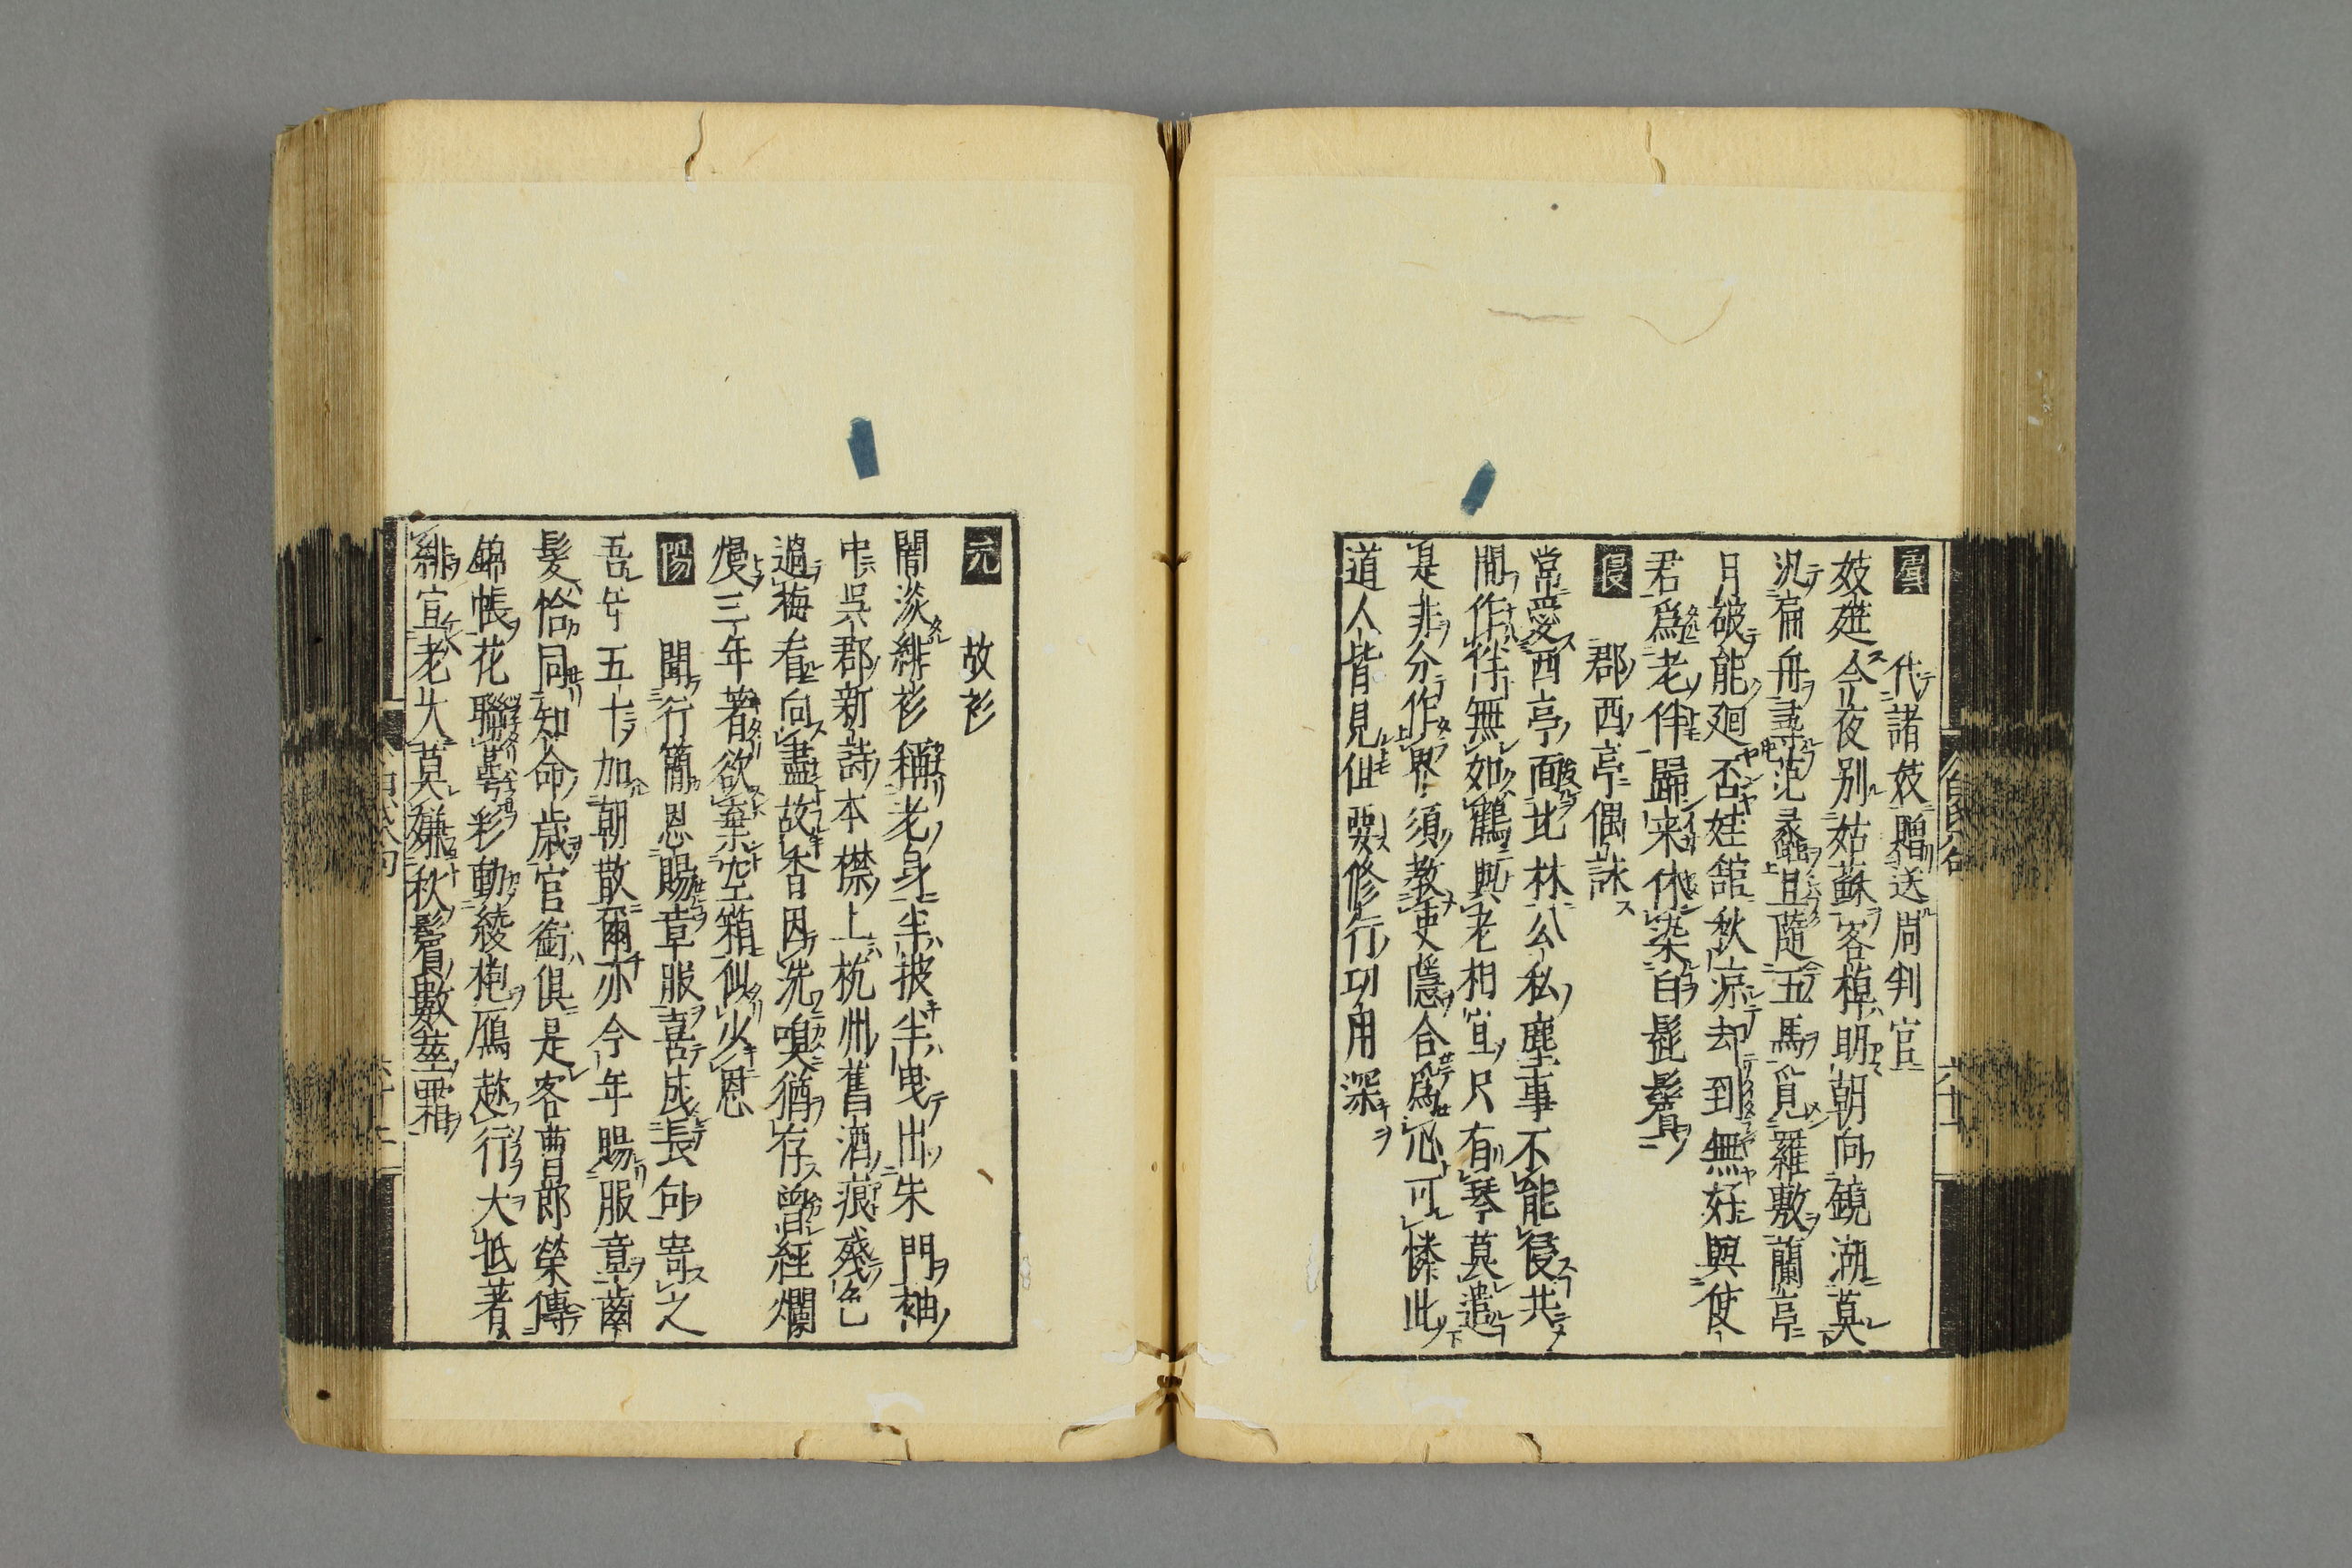 虞　代諸妓贈送周判官
妓筵今夜别姑蘇客棹明朝向鏡湖莫
汎扁舟尋范蠡且隨五馬覓羅敷蘭亭
月破能廻否娃舘秋凉却到無好與使
君爲老伴歸来休染白髭鬚
侵　郡西亭偶詠
常愛西亭面北林公私塵事不能侵共
閒作伴無如鶴與老相宜只有琴莫遣
是非分作界須教吏隱合爲心可憐此
道人皆見但要修行功用深
元　故衫
闇淡緋衫稱老身半披半曳出朱門袖
中呉郡新詩本襟上杭州舊酒痕殘色
過梅看向盡故香因洗嗅猶存曾經爛
熳三年著欲棄空箱似少恩
陽　聞行簡恩賜章服喜成長句寄之
吾年五十加朝散爾亦今年賜服章齒
髮恰同知命歳官銜俱是客曹郎榮傳
錦帳花聯萼彩動綾袍鴈趂行大抵著
緋宜老大莫嫌秋鬢數莖霜